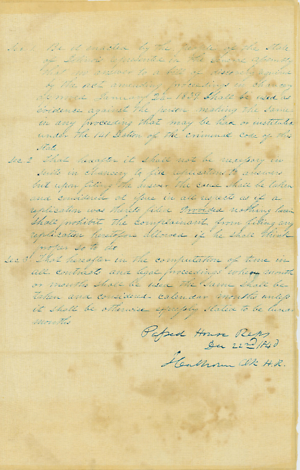 Sec 1 Be it enacted by the of the State
of
that no answer to a bill of discovery given
by the act
approved January 23d shall be used as
evidence against the person making the same
in any proceeding that may be had or instituted
under the Section of the criminal code of this
State
Sec 2 That hereafter it shall not be necessary in
suits in chancery to file replications to answers
but upon filing the answer the cause shall be taken
and considered at issue in all respects as if a
replication was filed Provided nothing herein
shall prohibit the complainant from filing any
replication heretofore allowed if he shall think
proper so to do
Sec 3 That hereafter in the computation of time in
all contracts and legal proceedings when month
or months shall be used the same shall be
taken and considered calendar months unless
it shall be otherwise expressly stated to be lunar
months
Passed House Reps
Dec 22nd 1840
Calhoun Clk H.R.